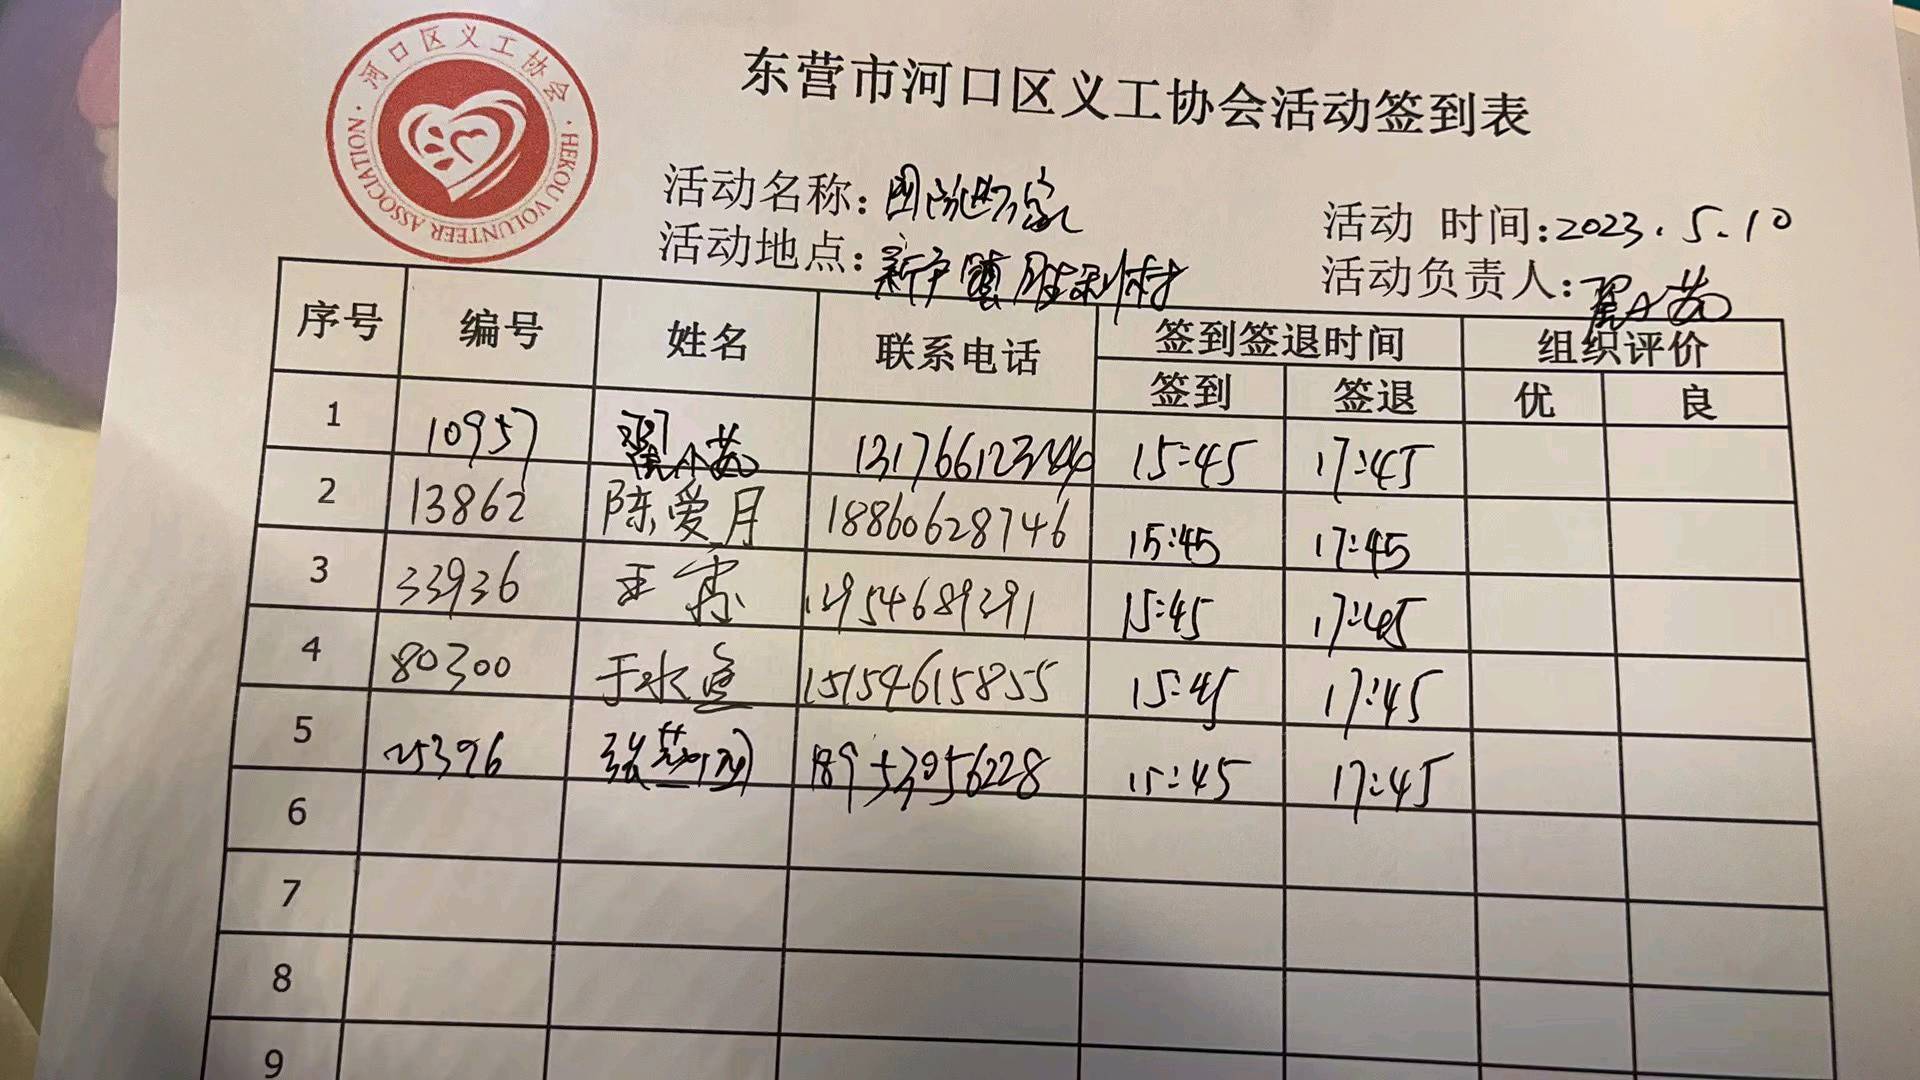 河口区义工协会
HEKOU VOLUNTEER ASSOCIATION
东营市河口区义工协会活动签到表
活动名称:
活动 时间:2023.5.10
活动地点:新户镇胜利村
活动负责人:翟小茹
序号 编号 姓名 联系电话 签到签退时间 组织评价
签到 签退 优 良
1 10957 翟小茹 15:45 17:45
2 13862 陈爱月 18860628746 15:45 17:45
3 33936 王霖 13954689391 15:45 17:45
4 80300 于水 15154615855 15:45 17:45
5 25396 张 18953956228 15:45 17:45
6
7
8
9